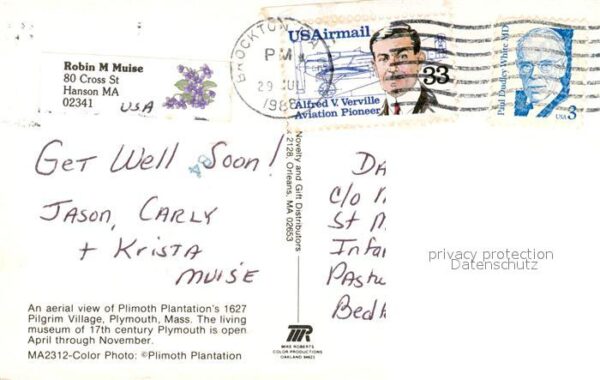 Robin M Muise
80 Cross St
Hanson MA
02341
USA
BROCKTON, MA
PM
29 JUL
USAirmail
33
Alfred V. Verville
Aviation Pioneer
Paul Dudley White MD
USA 3
Get Well Soon!
Jason, Carly
+ Krista
Muise
An aerial view of Plimoth Plantation's 1627
Pilgrim Village, Plymouth, Mass. The living
museum of 17th century Plymouth is open
April through November.
MA2312-Color Photo: ©Plimoth Plantation
Novelty and Gift Distributors
x 2128, Orleans, MA 02653
MR
MIKE ROBERTS
COLOR PRODUCTIONS
OAKLAND 94623
c/o
St
privacy protection
Datenschutz